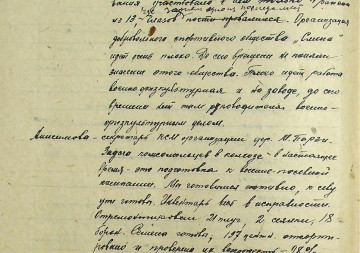 из 13,
добровольного спортивного общества "Смена"
идет очень плохо. До сего времени не поняли
значение этого общества. Плохо идет работа
военно-физкультурная и на заводе, до сего
времени нет там руководителя военно-
физкультурным делом.
Анисимова - секретарь КСМ организации дер. М.
Задача комсомольцев в колхозе - в настоящее
время - это подготовка к весенне-посевной
кампании. Мы готовимся активно, к севу
готовы. Инвентарь весь в исправности
Отремонтировали 21 плуг, 2 сеялки, 18
борон. Семена готовы,
и проверено их 98%